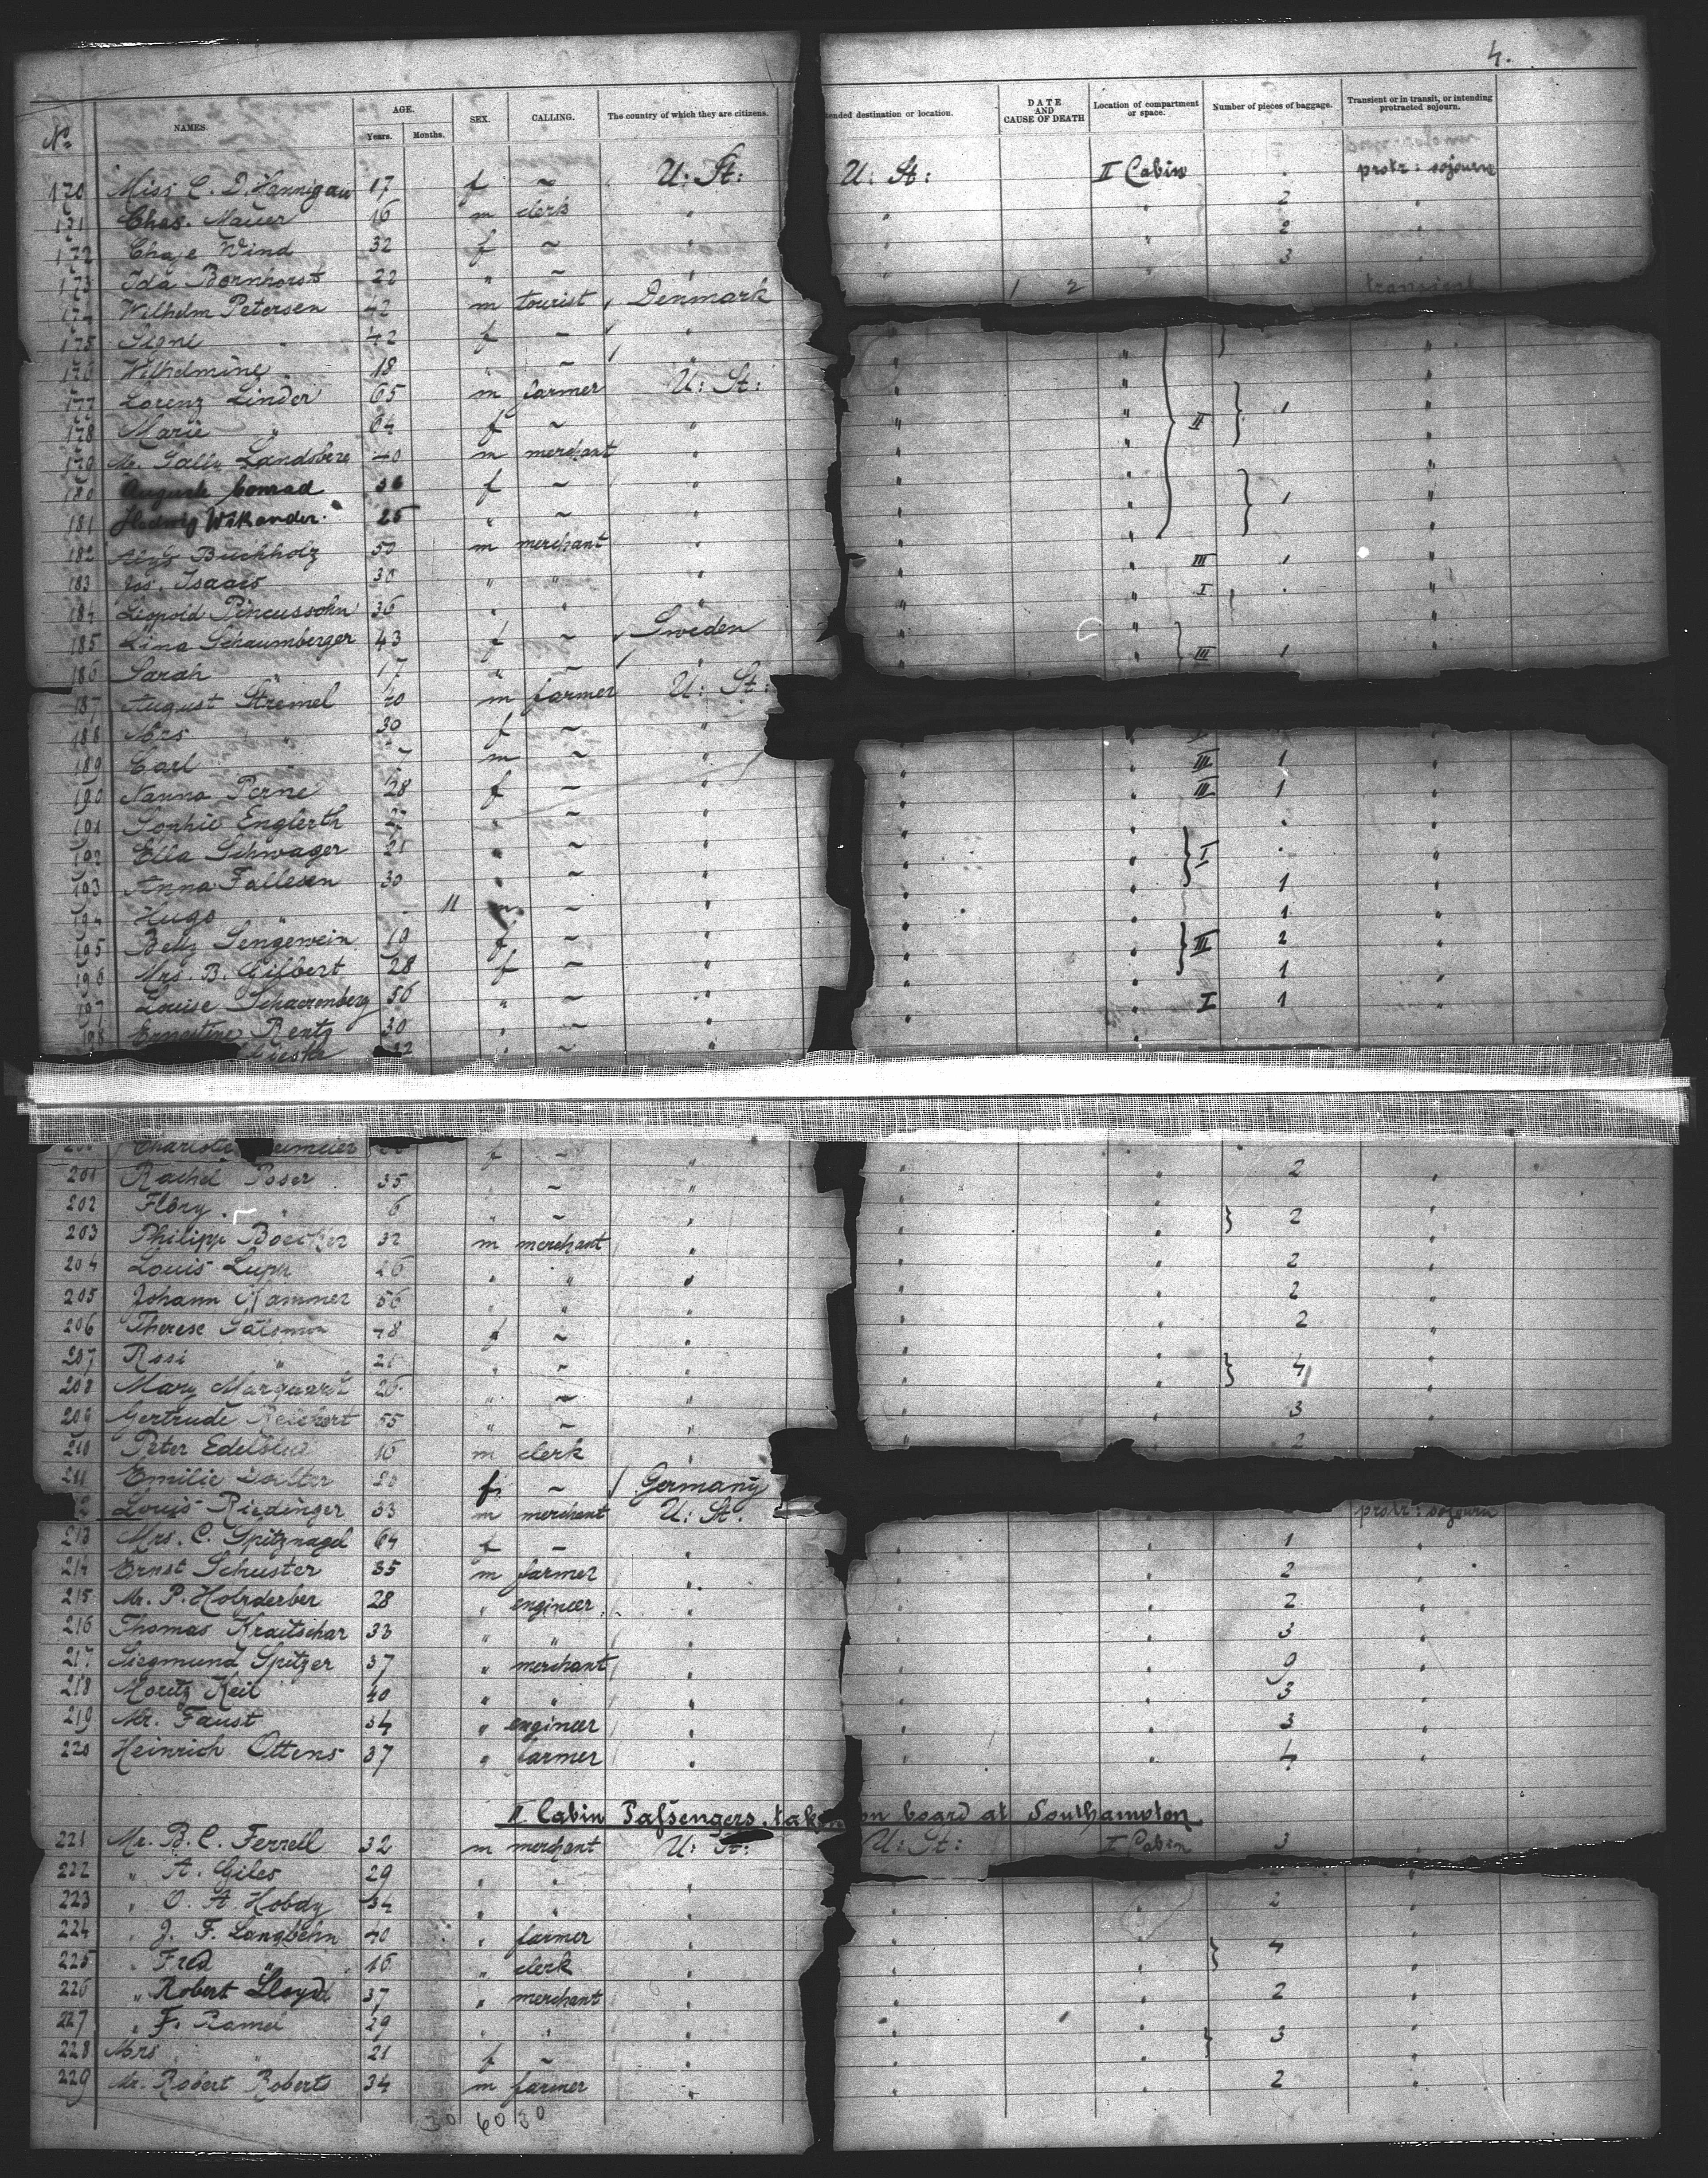 4.
No. NAMES. AGE. Years. Months. SEX. CALLING. The country of which they are citizens. tended destination or location. DATE AND CAUSE OF DEATH Location of compartment or space. Number of pieces of baggage. Transient or in transit, or intending protracted sojourn.
170 Miss C. D. Hannigan 17 f ~ U: St: U: St: II Cabin protr: sojourn
171 Chas. Mauer 16 m clerk " " " 2 "
172 Chaje Wind 32 f ~ " " " 2 "
173 Ida Bornhorst 22 " ~ " 3
174 Wilhelm Petersen 42 m tourist Denmark 1 2 transient
175 Signe " 42 f ~ "
176 Wilhelmine " 18 " ~ "
177 Lorenz Linder 65 m farmer U: St: " "
178 Marie " 64 f ~ " " " II 1 "
179 Mr. Sally Landsberg 40 m merchant "
180 August Conrad 36 f ~ "
181 Hedwig Wikander 25 " ~ " 1
182 Aloys Buchholz 50 m merchant "
183 Jos. Isaacs 30 " " " III 1
184 Leopold Pincussohn 36 " " " I
185 Lina Schaumberger 43 f ~ Sweden
186 Sarah " 17 " ~ " III 1
187 August Stremel 40 m farmer U: St:
188 Mrs " 30 f ~ "
189 Carl 7 m ~ " III 1
190 Nanna Perne 28 f ~ " III 1
191 Sophie Englerth 27 " ~ "
192 Ella Schwager 21 " ~ " I
193 Anna Fallesen 30 " ~ " 1
194 Hugo " - 11 m ~ " 1
195 Betty Sengewein 19 f ~ " III 2
196 Mrs. B. Gilbert 28 f ~ " 1
197 Louise Schaerenberg 56 " ~ " I 1
198 Ernestine Rentz 30 " ~ "
32 " ~
Charlotte f ~ "
201 Rachel Poser 35 " ~ " " " 2 "
202 Flory " 6 " ~ "
203 Philipp 32 m merchant " 2
204 Louis 26 " " " 2
205 Johann Hammer 56 " " " 2
206 Therese Salomon 48 f ~ " 2
207 Rosi " 21 " ~ "
208 Mary Marquardt 26 " ~ " 4
209 Gertrude Reichert 55 " ~ " 3
210 Peter 16 m clerk " 2
211 Emilie Walter 20 f ~ Germany
2 Louis Riedinger 33 m merchant U: St. protr: sojourn
213 Mrs. C. Spitznagel 64 f ~ " " " 1 "
214 Ernst Schuster 35 m farmer " " " 2 "
215 Mr. P. Holzderber 28 " engineer " " " 2 "
216 Thomas Kraitschar 33 " " " " " 3 "
217 Siegmund Spitzer 37 " merchant " " " 9 "
218 Moritz Keil 40 " " " " " 3 "
219 Mr. Faust 34 " engineer " " " 3 "
220 Heinrich Ottens 37 " farmer " " " 4 "
II Cabin Passengers taken on board at Southampton
221 Mr. B. C. Ferrell 32 m merchant U: St: U: St: I Cabin 3
222 " A. Giles 29 " " "
223 " O. A. Hobdy 34 " " " " 2 "
224 " J. F. Langbehn 40 " farmer " " " 4 "
225 " Fred " 16 " clerk " " "
226 " Robert Lloyd 37 " merchant " " " 2 "
227 " F. Ramel 29 " " " " " 3 "
228 Mrs " 21 f ~ " " "
229 Mr. Robert Roberts 34 m farmer " " " 2 "
30 60 30